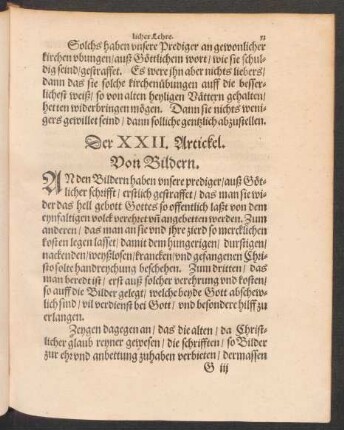 licher Lehre. 23
Solchs haben vnsere Prediger an gewonlicher
kirchen vbungen/auß Göttlichem wort/wie sie schul-
dig seind/gestraffet. Es were jhn aber nichts liebers/
dann das sie solche kirchenübungen auff die besser-
lichest weiß/so von alten heyligen Vättern gehalten/
hetten widerbringen mögen. Dann sie nichts weni-
gers gewillet seind/dann solliche gentzlich abzustellen.
Der XXII. Artickel.
Von Bildern.
AN den Bildern haben vnsere prediger/auß Göt-
licher schrifft/erstlich gestraffet/das man sie wi-
der das hell gebott Gottes so offentlich laßt von dem
eynfaltigen volck verehret vñ angebetten werden. Zum
anderen/das man an sie vnd jhre zierd so mercklichen
kosten legen lasset/damit dem hungerigen/durstigen/
nackenden/weyßlosen/krancken/vnd gefangenen Chri-
sto solte handreychung beschehen. Zum dritten/das
man beredt ist/erst auß solcher verehrung vnd kosten/
so auff die Bilder gelegt/welche beyde Gott abschew-
lich sind/vil verdienst bei Gott/vnd besondere hilff zu
erlangen.
Zeygen dagegen an/das die alten/da Christ-
licher glaub reyner gewesen/die schrifften/so Bilder
zur ehr vnd anbettung zuhaben verbieten/dermassen
G iij